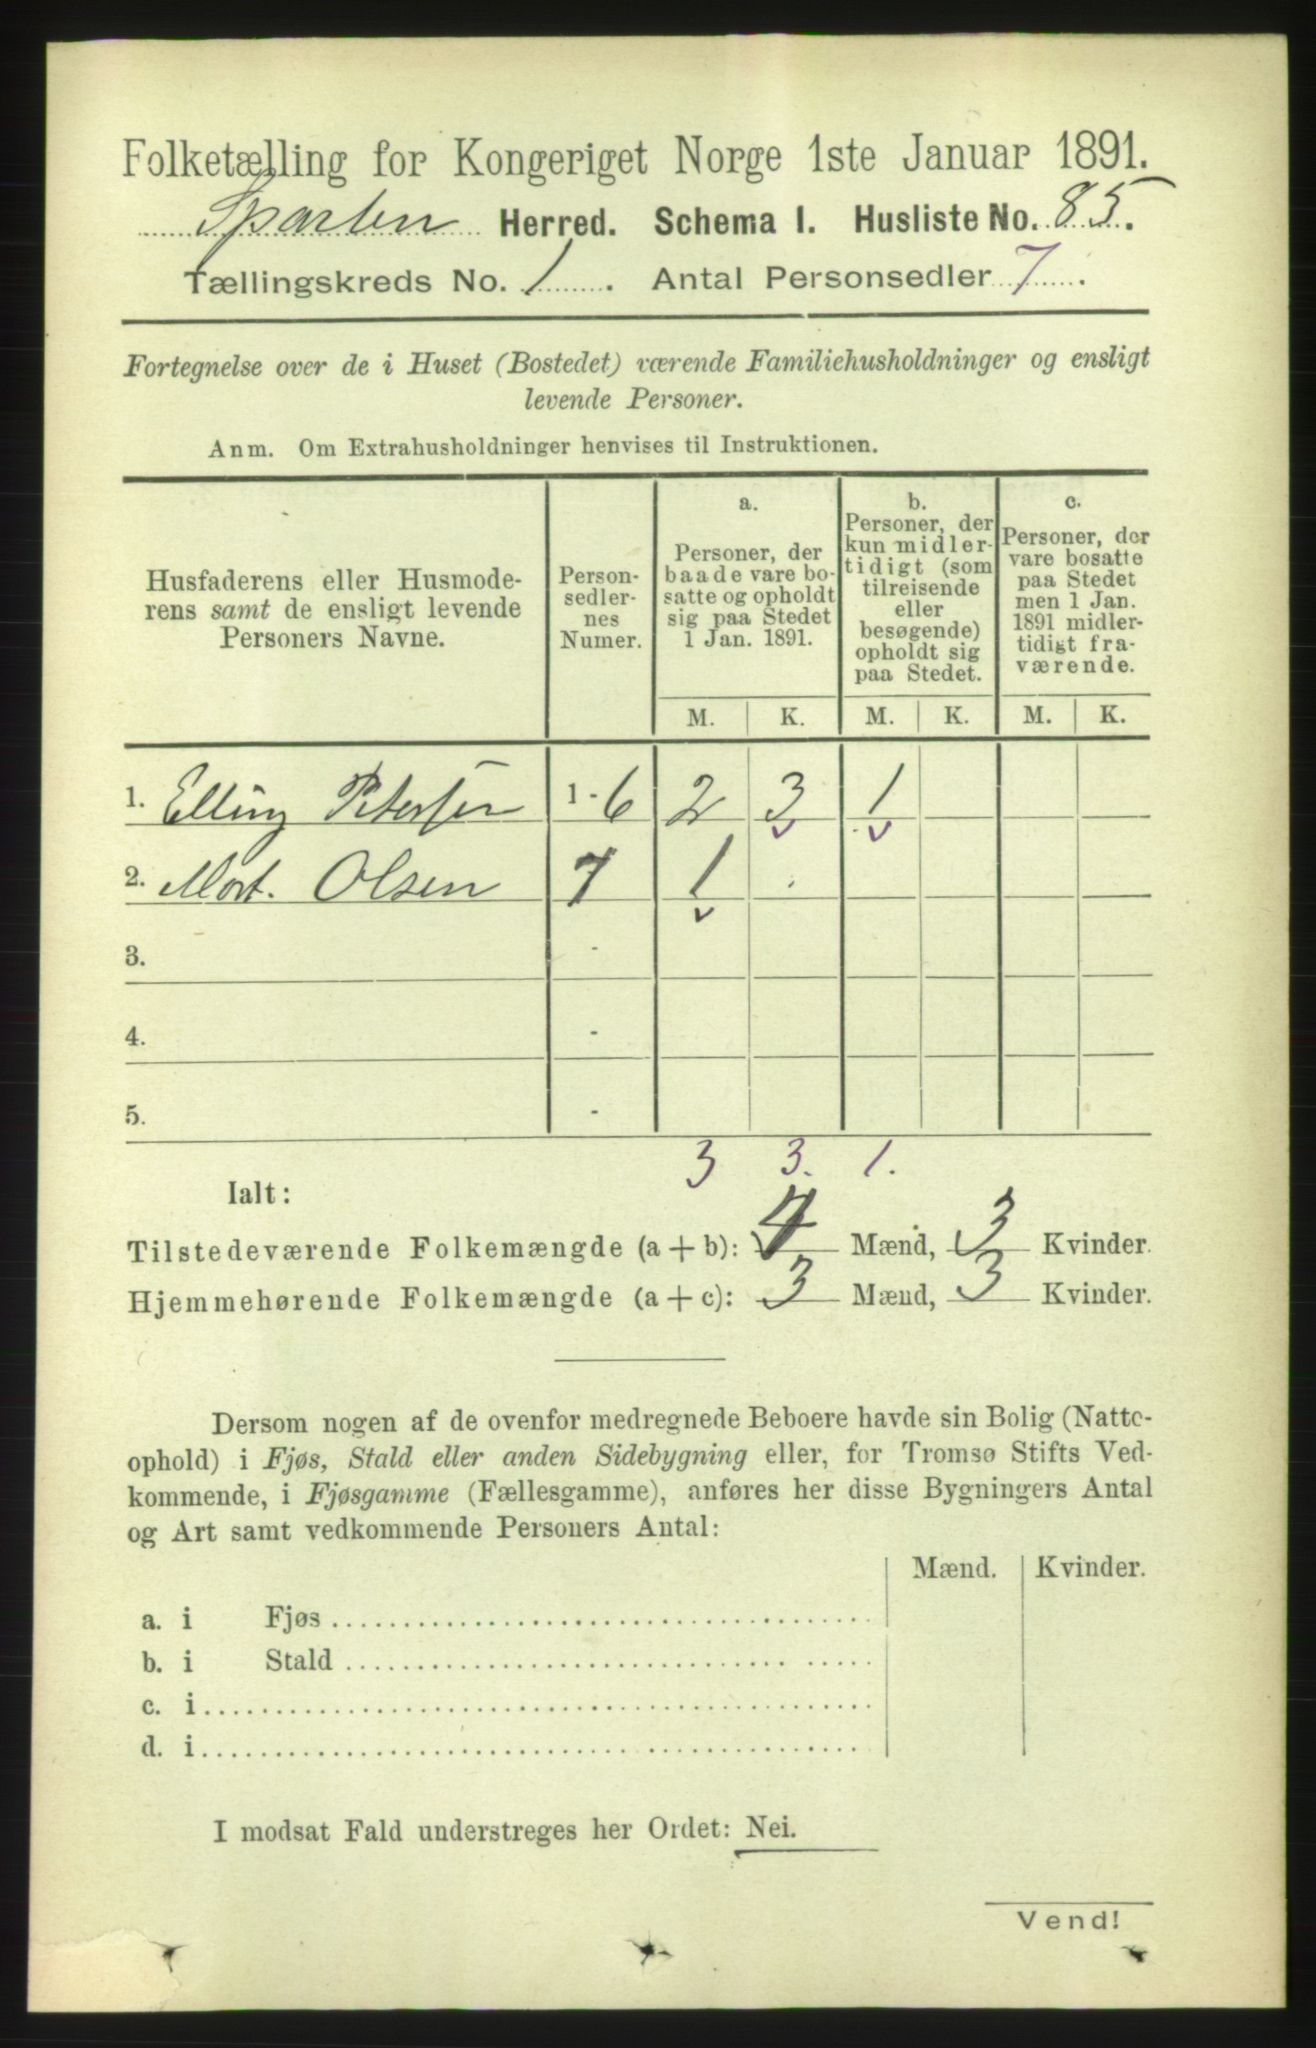 Folketælling for Kongeriget Norge 1ste Januar 1891.
Sparbu Herred. Schema I. Husliste No. 85.
Tællingskreds No. 1. Antal Personsedler 7.
Fortegnelse over de i Huset (Bostedet) værende Familiehusholdninger og ensligt
levende Personer.
Anm. Om Extrahusholdninger henvises til Instruktionen.
Husfaderens eller Husmode-
rens samt de ensligt levende
Personers Navne.
Person-
sedler-
nes
Numer.
a.
Personer, der
baade vare bo-
satte og opholdt
sig paa Stedet
1 Jan. 1891.
b.
Personer, der
kun midler-
tidigt (som
tilreisende
eller
besøgende)
opholdt sig
paa Stedet.
c.
Personer, der
vare bosatte
paa Stedet
men 1 Jan.
1891 midler-
tidigt fra-
værende.
M. K. M. K. M. K.
1. Elling Petersen 1-6 2 3 1
2. Mort. Olsen 7 1 .
3. -
4. -
5. -
3 3. 1.
Ialt:
Tilstedeværende Folkemængde (a+b): 4 Mænd, 3 Kvinder.
Hjemmehørende Folkemængde (a+c): 3 Mænd, 3 Kvinder.
Dersom nogen af de ovenfor medregnede Beboere havde sin Bolig (Natte-
ophold) i Fjøs, Stald eller anden Sidebygning eller, for Tromsø Stifts Ved-
kommende, i Fjøsgamme (Fællesgamme), anføres her disse Bygningers Antal
og Art samt vedkommende Personers Antal:
Mænd. Kvinder.
a. i Fjøs
b. i Stald
c. i
d. i
I modsat Fald understreges her Ordet: Nei.
Vend!